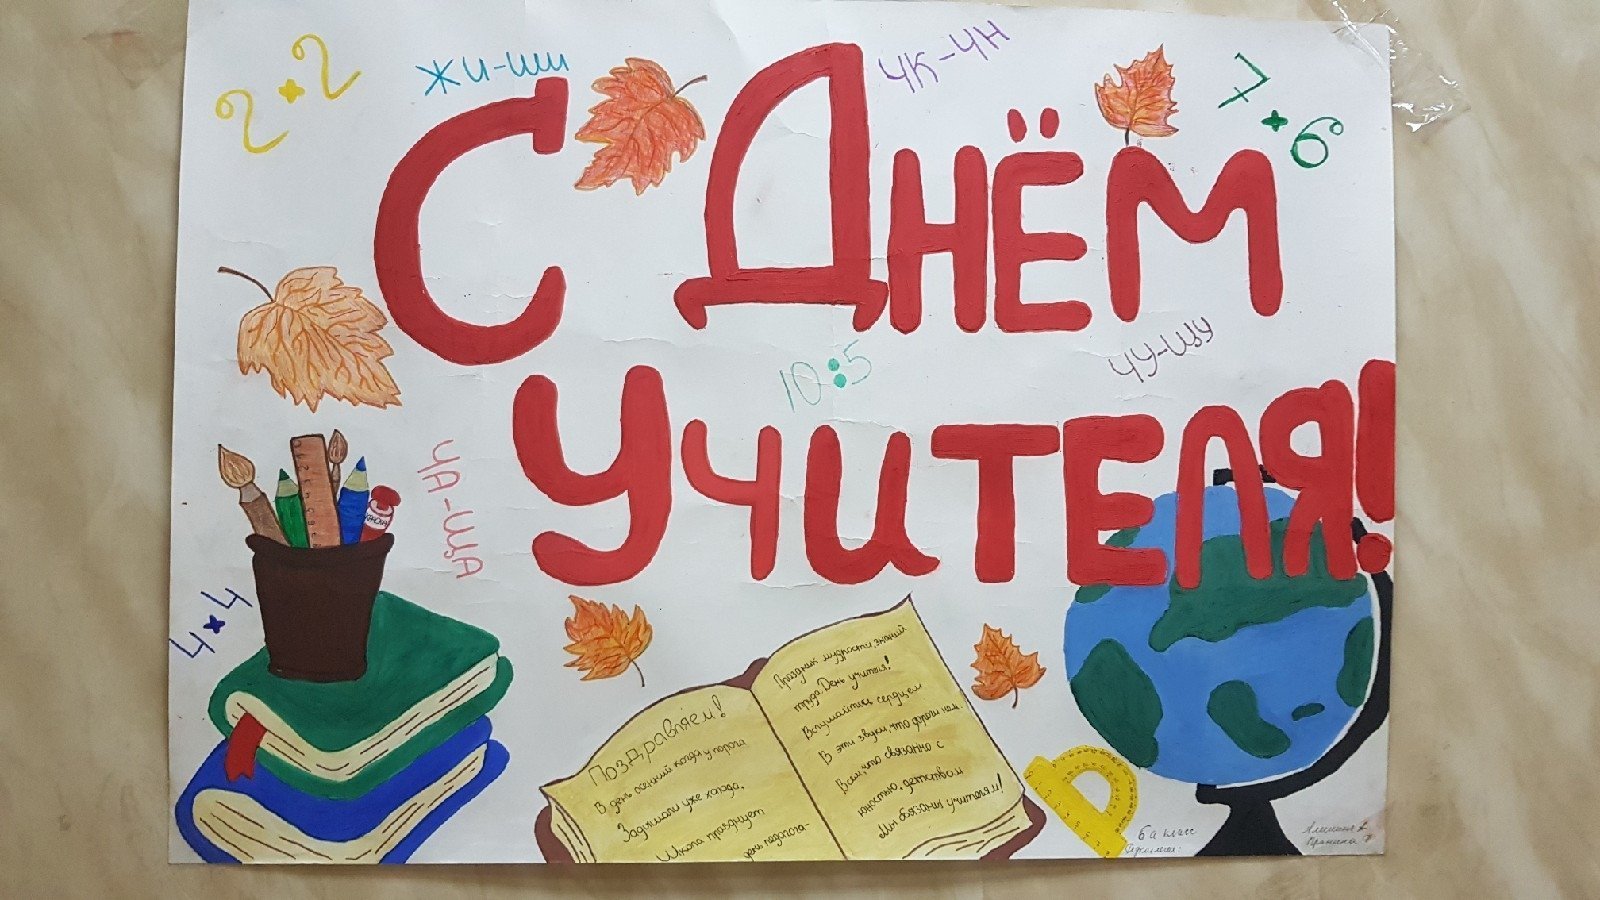 2•2
ЖИ-ШИ
ЧК-ЧН
7•6
С ДНЁМ
10:5
ЧУ-ЩУ
УЧИТЕЛЯ!
ЧА-ЩА
4×4
Поздравляем!
В день осенний когда у порога
Задышали уже холода,
Школа празднует
день педагога-
Праздник мудрости, знаний
труда. День учителя!
Вслушайтесь сердцем
В эти звуки, что дороги нам.
Всем, что связанно с
юностью, детством
Мы обязаны учителям!
6а класс